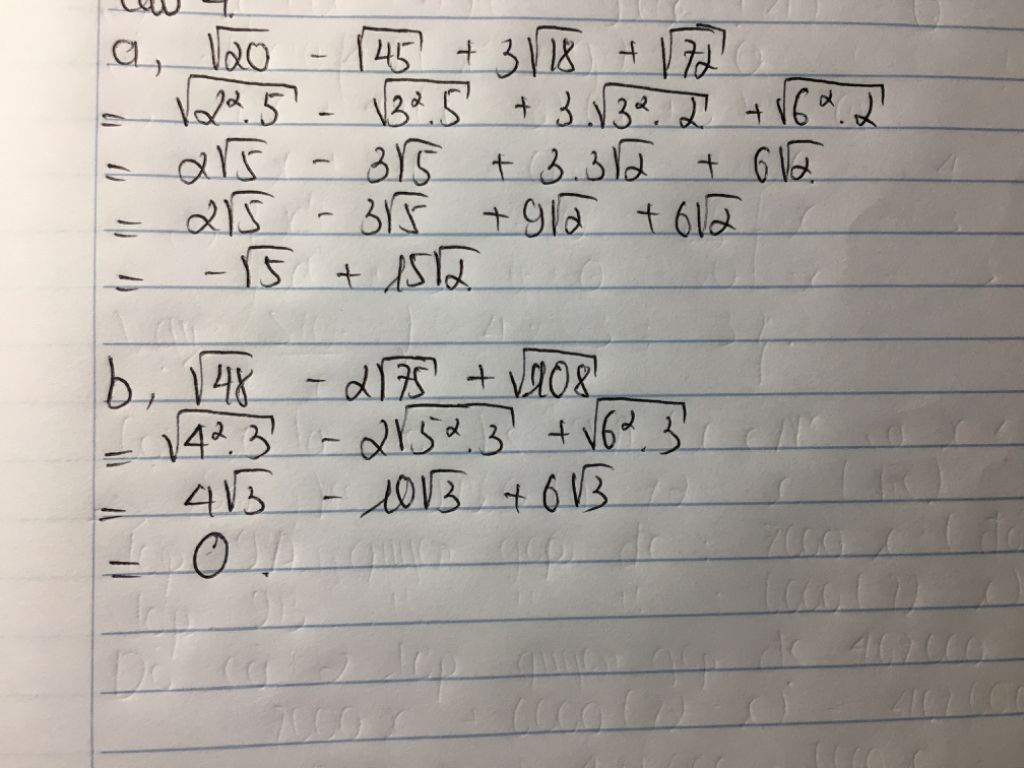 a, √20 - √45 + 3√18 + √72
= √2².5 - √3².5 + 3.√3².2 + √6².2
= 2√5 - 3√5 + 3.3√2 + 6√2
= 2√5 - 3√5 + 9√2 + 6√2
= -√5 + 15√2
b, √48 - 2√75 + √108
= √4².3 - 2√5².3 + √6².3
= 4√3 - 10√3 + 6√3
= 0.